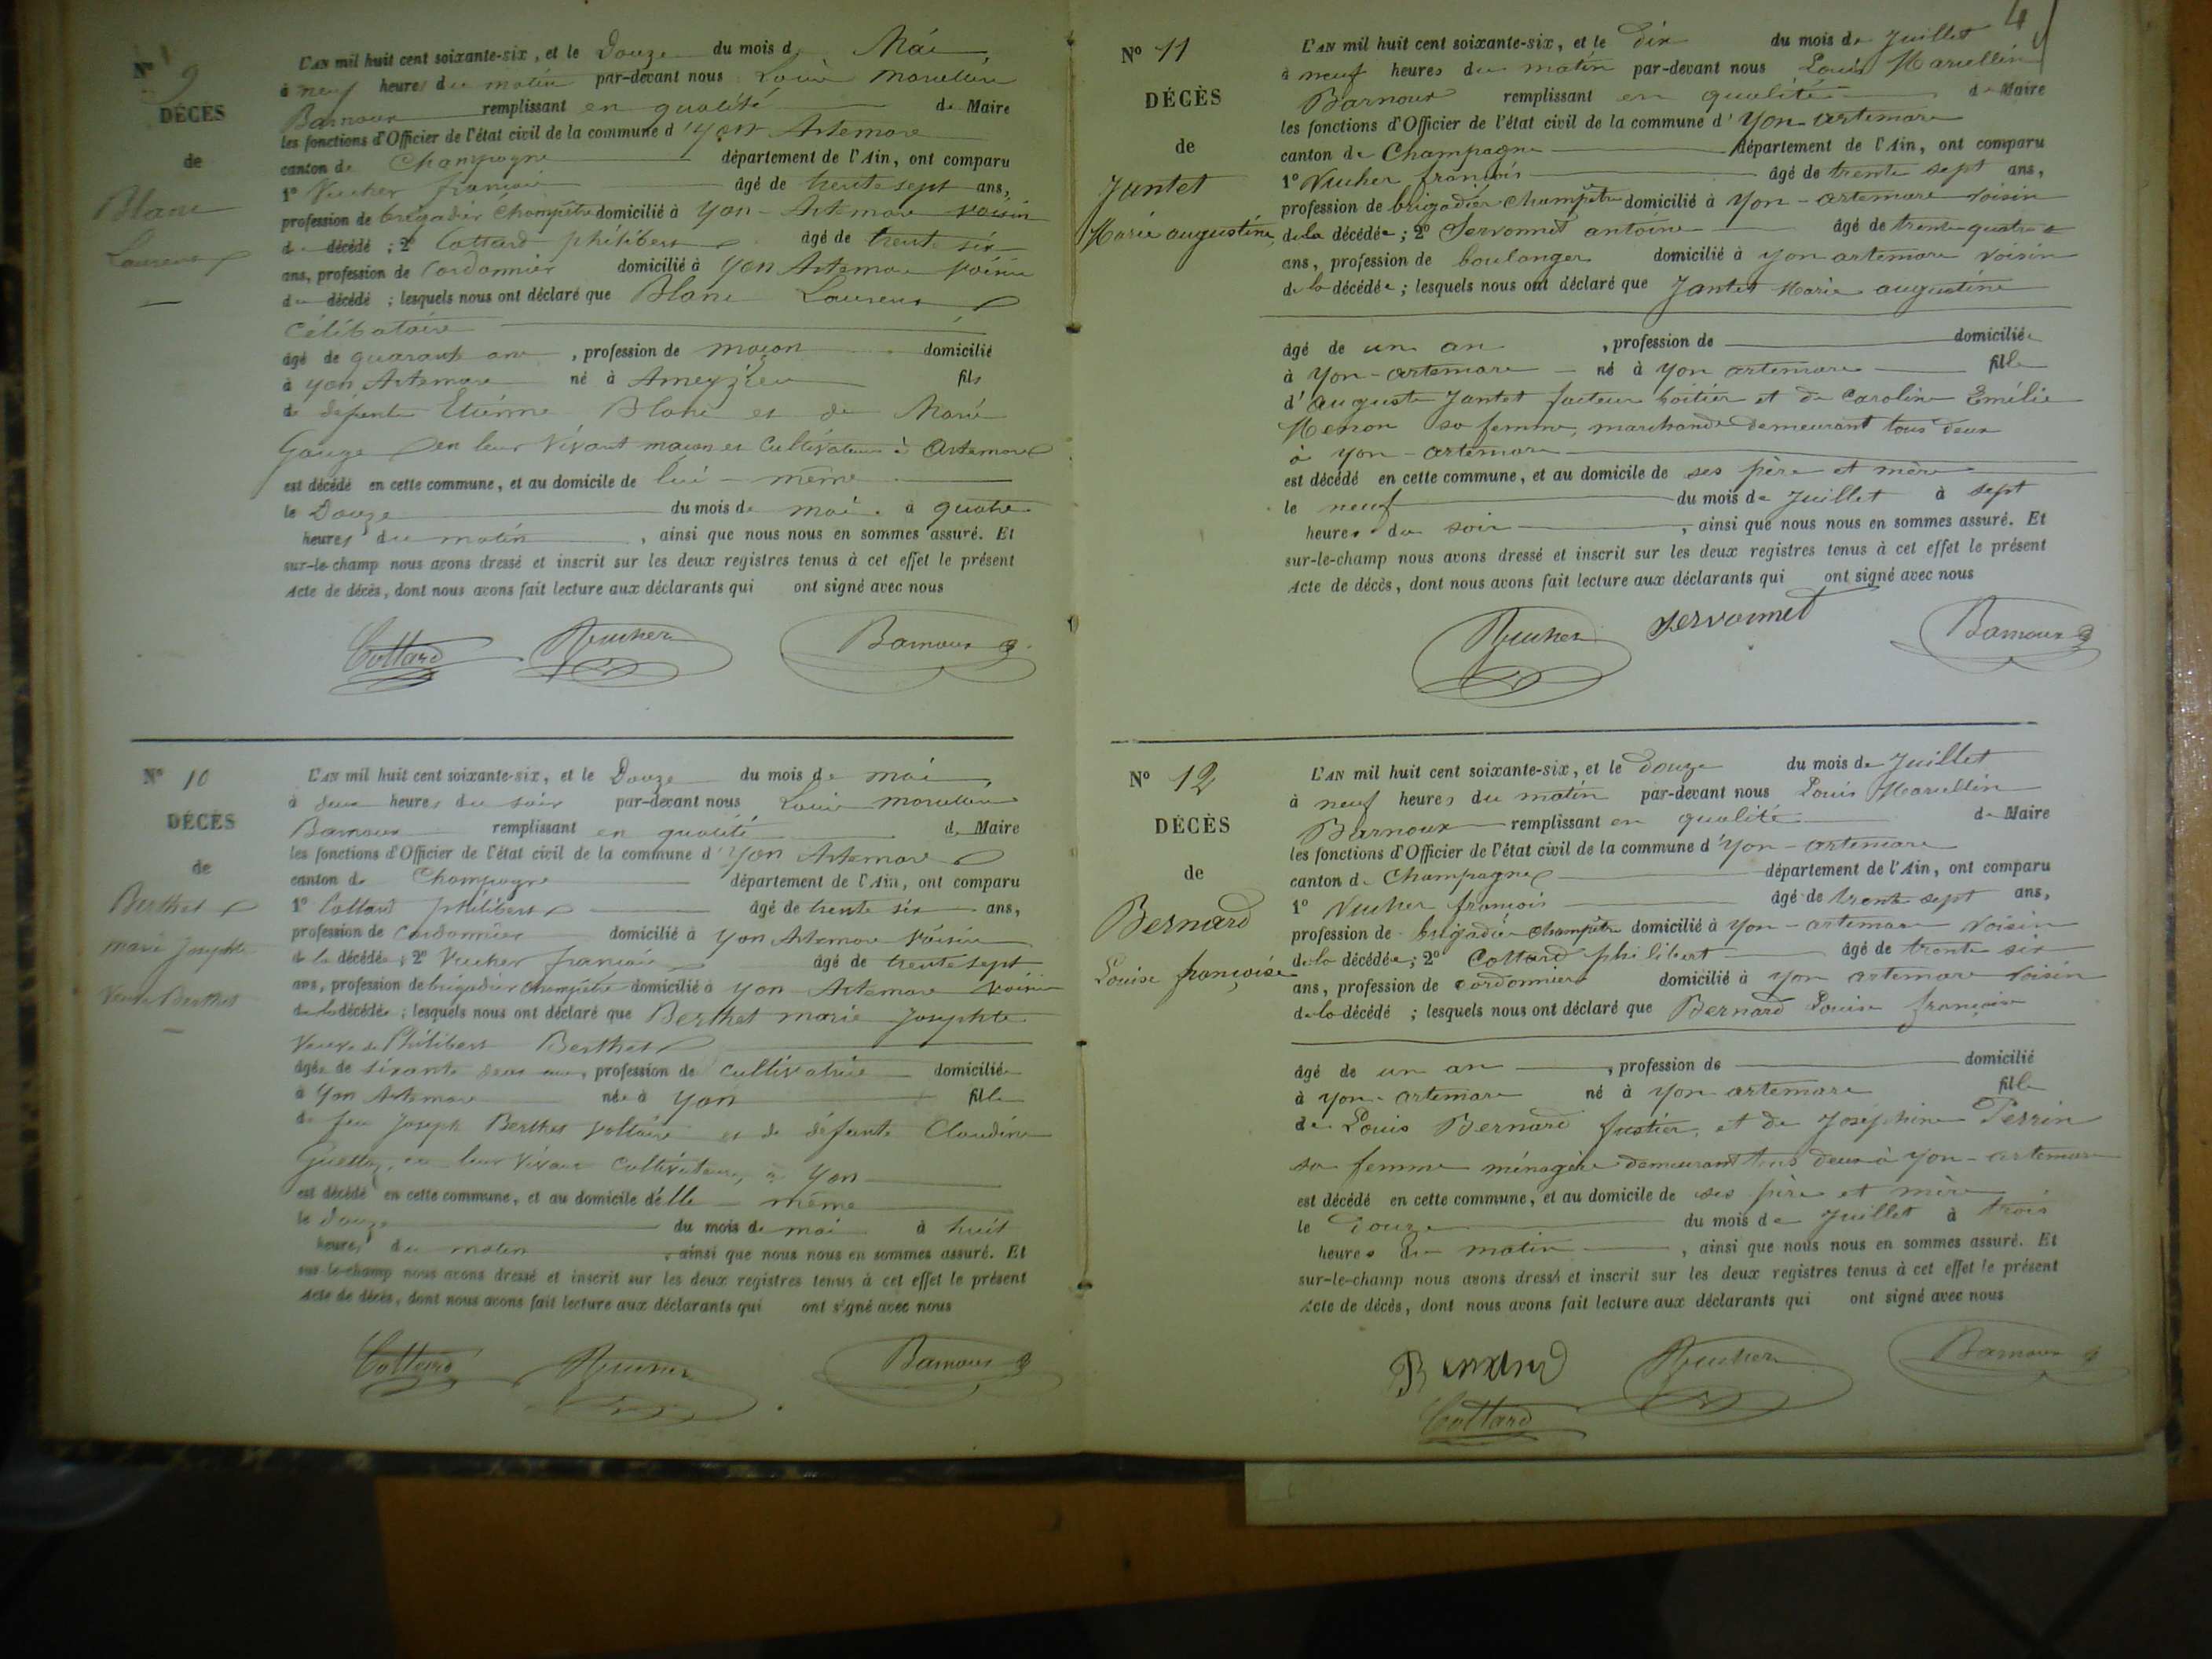 N° 9
DÉCÈS
de
Blanc
Laurent
L'AN mil huit cent soixante-six, et le Douze du mois de Mai
à neuf heures du matin par-devant nous Louis Marcellin
Barnoux remplissant en qualité de Maire
les fonctions d'Officier de l'état civil de la commune d'Yon Artemare
canton de Champagne département de l'Ain, ont comparu
1° Vucher françois âgé de trente sept ans,
profession de brigadier Champêtre domicilié à Yon-Artemare voisin
du décédé ; 2° Cottard philibert âgé de trente six
ans, profession de Cordonnier domicilié à Yon Artemare voisin
du décédé ; lesquels nous ont déclaré que Blanc Laurent
Célibataire
âgé de quarante ans, profession de maçon domicilié
à yon Artemare né à Ameyzieu fils
de défunts Etienne Blanc et de Marie
Gauze en leur vivant maçon et Cultivateurs à Artemare
est décédé en cette commune, et au domicile de lui-même
le Douze du mois de mai à quatre
heures du matin, ainsi que nous nous en sommes assuré. Et
sur-le-champ nous avons dressé et inscrit sur les deux registres tenus à cet effet le présent
Acte de décès, dont nous avons fait lecture aux déclarants qui ont signé avec nous
Cottard Vucher Barnoux
N° 10
DÉCÈS
de
Berthet
marie Josephte
Veuve Berthet
L'AN mil huit cent soixante-six, et le Douze du mois de mai
à deux heures du soir par-devant nous Louis marcellin
Barnoux remplissant en qualité de Maire
les fonctions d'Officier de l'état civil de la commune d'Yon Artemare
canton de Champagne département de l'Ain, ont comparu
1° Cottard philibert âgé de trente six ans,
profession de Cordonnier domicilié à Yon Artemare voisin
de la décédée ; 2° Vucher françois âgé de trente sept
ans, profession de brigadier champêtre domicilié à Yon-Artemare voisin
de la décédée ; lesquels nous ont déclaré que Berthet marie Josephte
Veuve de Philibert Berthet
âgée de soixante deux ans, profession de cultivatrice domiciliée
à Yon Artemare née à Yon fille
de feu Joseph Berthet voltaire et de défunte Claudine
en leur vivant Cultivateurs, à Yon
est décédé en cette commune, et au domicile d'elle-même
le douze du mois de mai à huit
heures du matin, ainsi que nous nous en sommes assuré. Et
sur-le-champ nous avons dressé et inscrit sur les deux registres tenus à cet effet le présent
Acte de décès, dont nous avons fait lecture aux déclarants qui ont signé avec nous
Cottard Vucher Barnoux
4
N° 11
DÉCÈS
de
Jantet
Marie augustine
L'AN mil huit cent soixante-six, et le Dix du mois de Juillet
à neuf heures du matin par-devant nous Louis Marcellin
Barnoux remplissant en qualité de Maire
les fonctions d'Officier de l'état civil de la commune d'Yon-artemare
canton de Champagne département de l'Ain, ont comparu
1° Vucher françois âgé de trente sept ans,
profession de brigadier champêtre domicilié à Yon-artemare voisin
de la décédée ; 2° Servonnet antoine âgé de trente quatre
ans, profession de boulanger domicilié à yon artemare voisin
de la décédée ; lesquels nous ont déclaré que Jantet Marie augustine
âgé de un an, profession de domiciliée
à Yon-artemare né à Yon artemare fille
d'auguste Jantet facteur boitier et de Caroline Emélie
Menon sa femme, marchande demeurant tous deux
à yon-artemare
est décédé en cette commune, et au domicile de ses père et mère
le neuf du mois de Juillet à sept
heures du soir, ainsi que nous nous en sommes assuré. Et
sur-le-champ nous avons dressé et inscrit sur les deux registres tenus à cet effet le présent
Acte de décès, dont nous avons fait lecture aux déclarants qui ont signé avec nous
Vucher Servonnet Barnoux
N° 12
DÉCÈS
de
Bernard
Louise françoise
L'AN mil huit cent soixante-six, et le Douze du mois de Juillet
à neuf heures du matin par-devant nous Louis Marcellin
Barnoux remplissant en qualité de Maire
les fonctions d'Officier de l'état civil de la commune d'Yon-artemare
canton de Champagne département de l'Ain, ont comparu
1° Vucher françois âgé de trente sept ans,
profession de brigadier champêtre domicilié à Yon-artemare voisin
de la décédée ; 2° Cottard philibert âgé de trente six
ans, profession de cordonnier domicilié à yon artemare voisin
de la décédé ; lesquels nous ont déclaré que Bernard Louise françoise
âgé de un an, profession de domicilié
à yon-artemare né à Yon artemare fille
de Louis Bernard fustier, et de Joséphine Perrin
sa femme ménagère demeurant tous deux à yon-artemare
est décédé en cette commune, et au domicile de ses père et mère
le Douze du mois de Juillet à trois
heures du matin, ainsi que nous nous en sommes assuré. Et
sur-le-champ nous avons dressé et inscrit sur les deux registres tenus à cet effet le présent
Acte de décès, dont nous avons fait lecture aux déclarants qui ont signé avec nous
Bernard Vucher Barnoux
Cottard